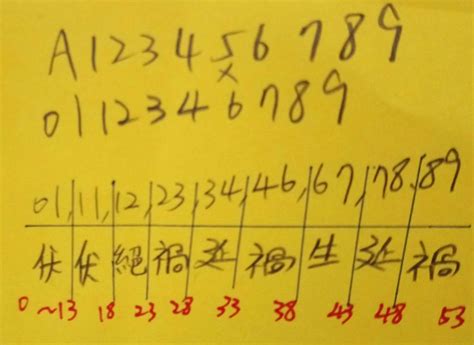 A123456789
x
0112346789
01,11,12,23,34,46,67,78,89
伏伏絕禍延禍生延禍
0~13 18 23 28 33 38 43 48 53